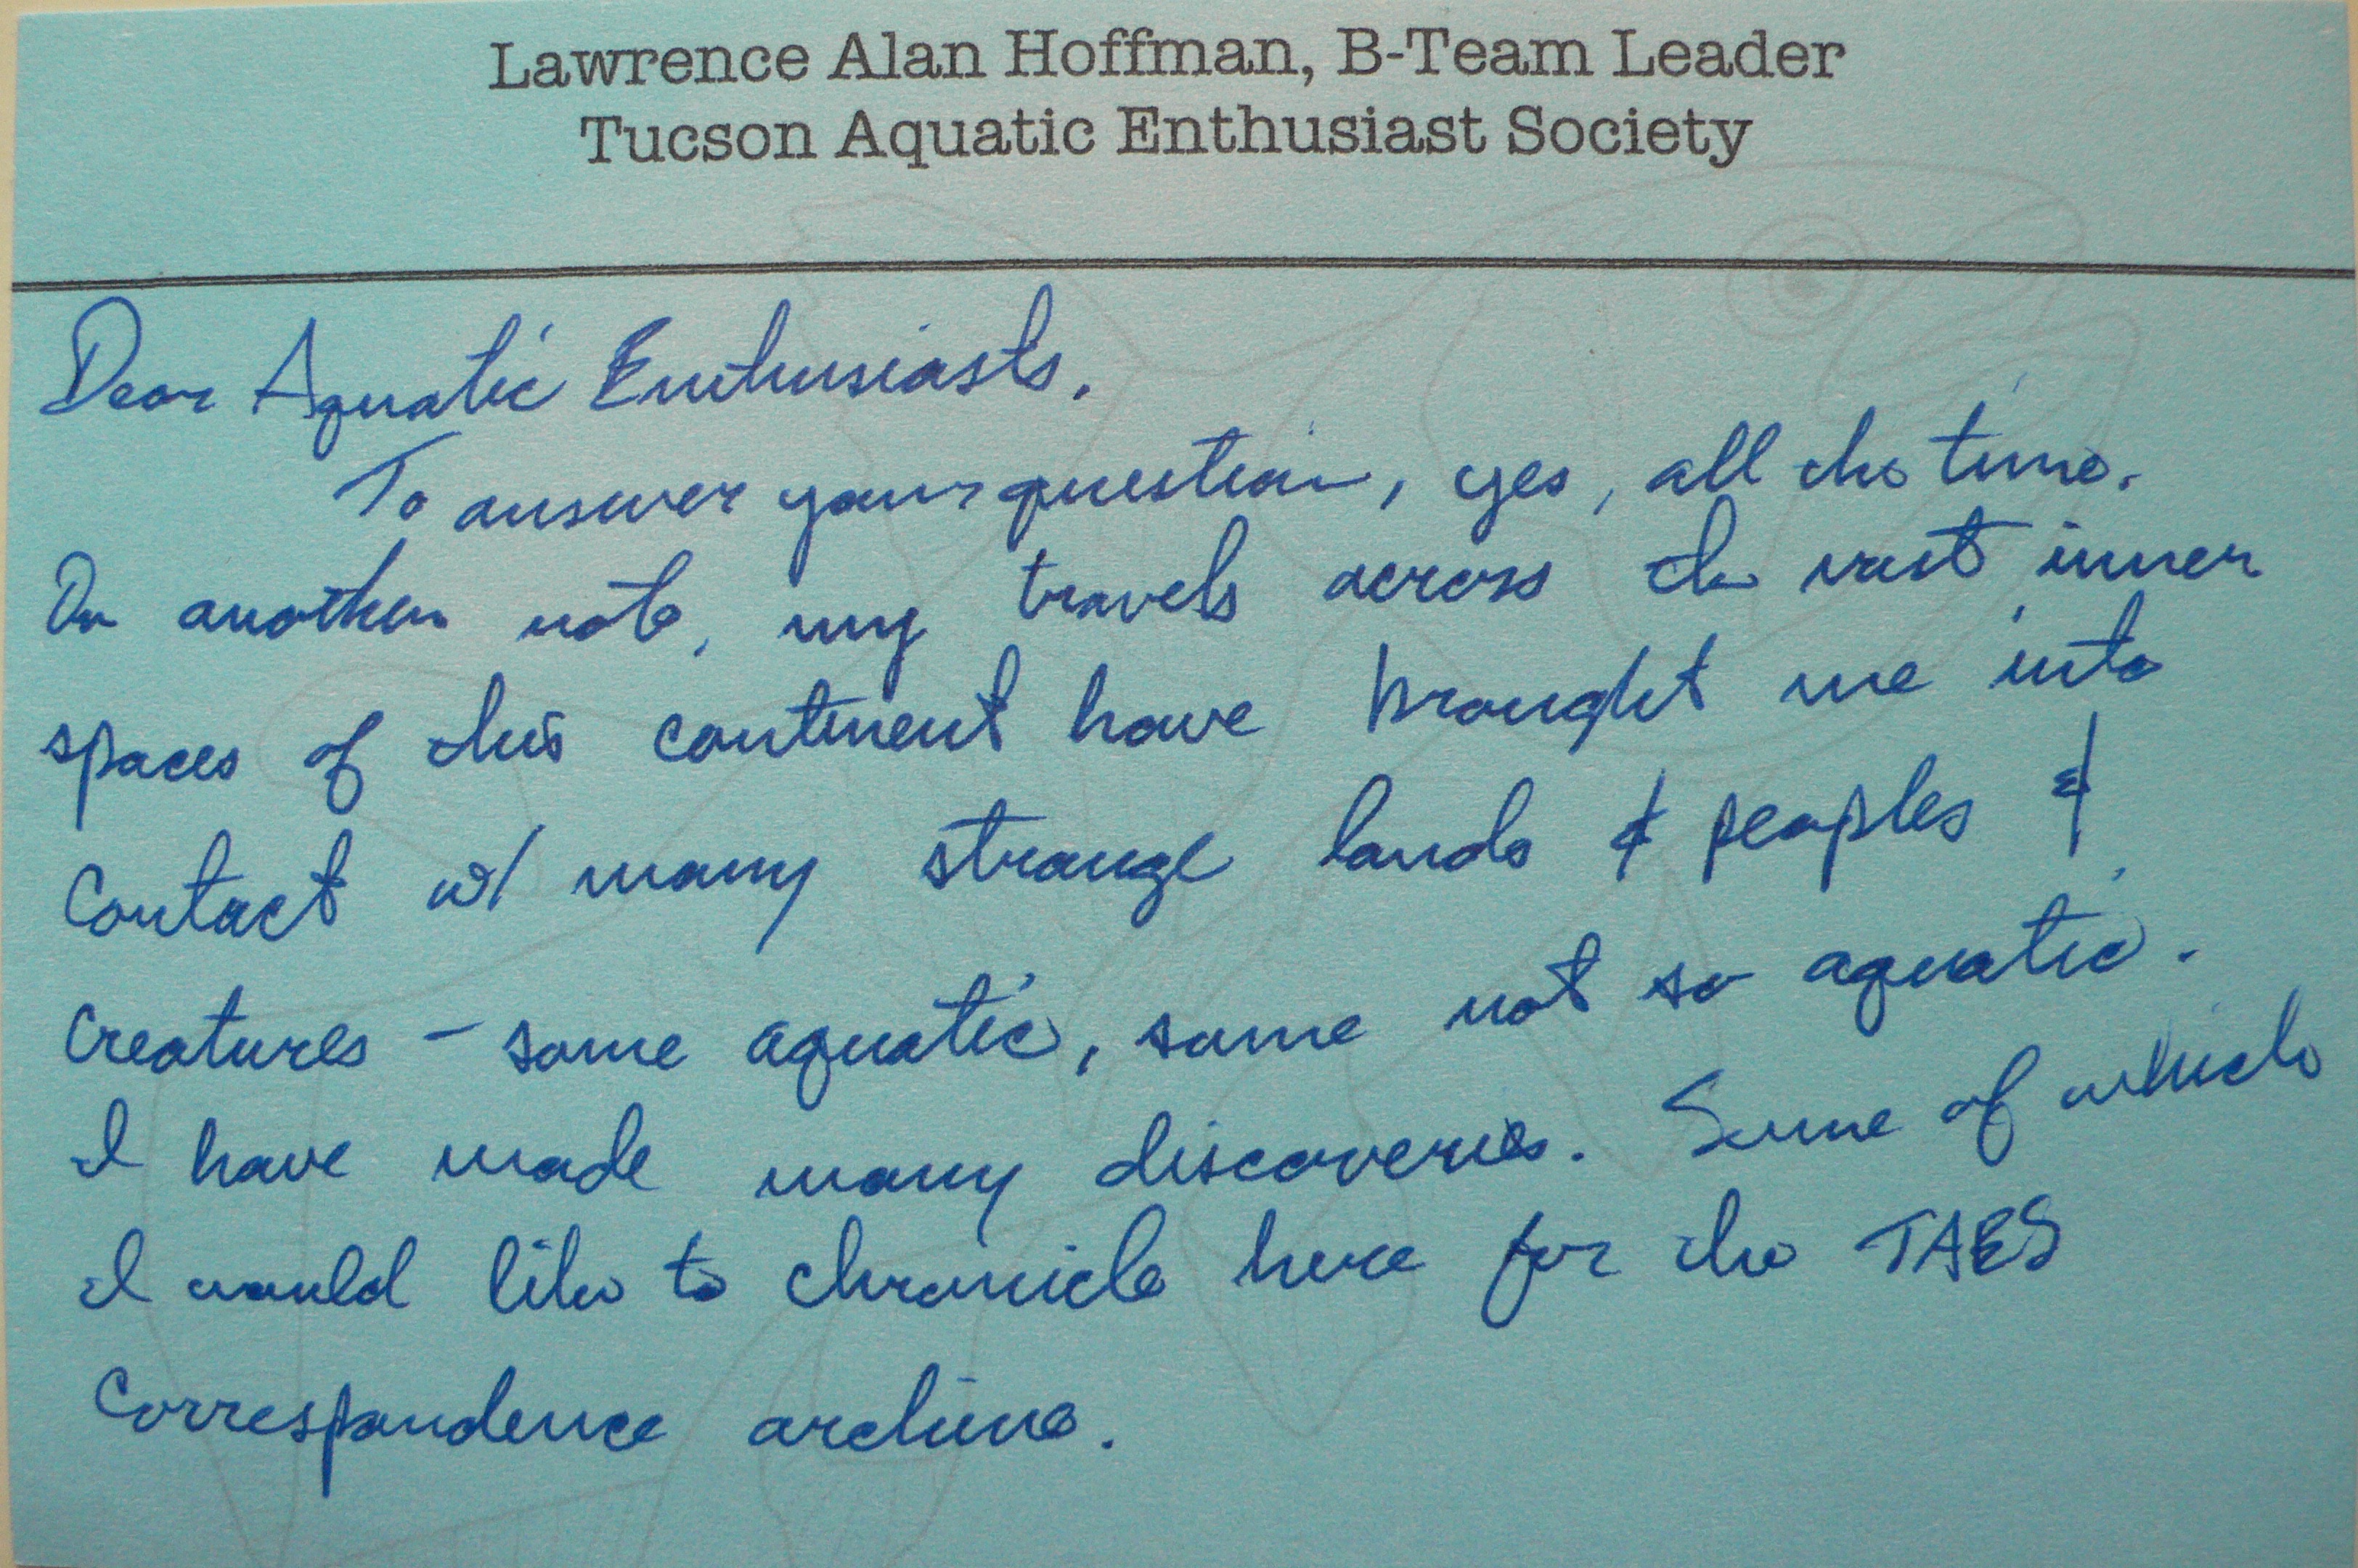 Lawrence Alan Hoffman, B-Team Leader
Tucson Aquatic Enthusiast Society
Dear Aquatic Enthusiasts,
To answer your question, yes, all the time.
On another note, my travels across the vast inner
spaces of this continent have brought me into
contact w/ many strange lands & peoples &
creatures - some aquatic, some not so aquatic.
I have made many discoveries. Some of which
I would like to chronicle here for the TAES
correspondence archive.